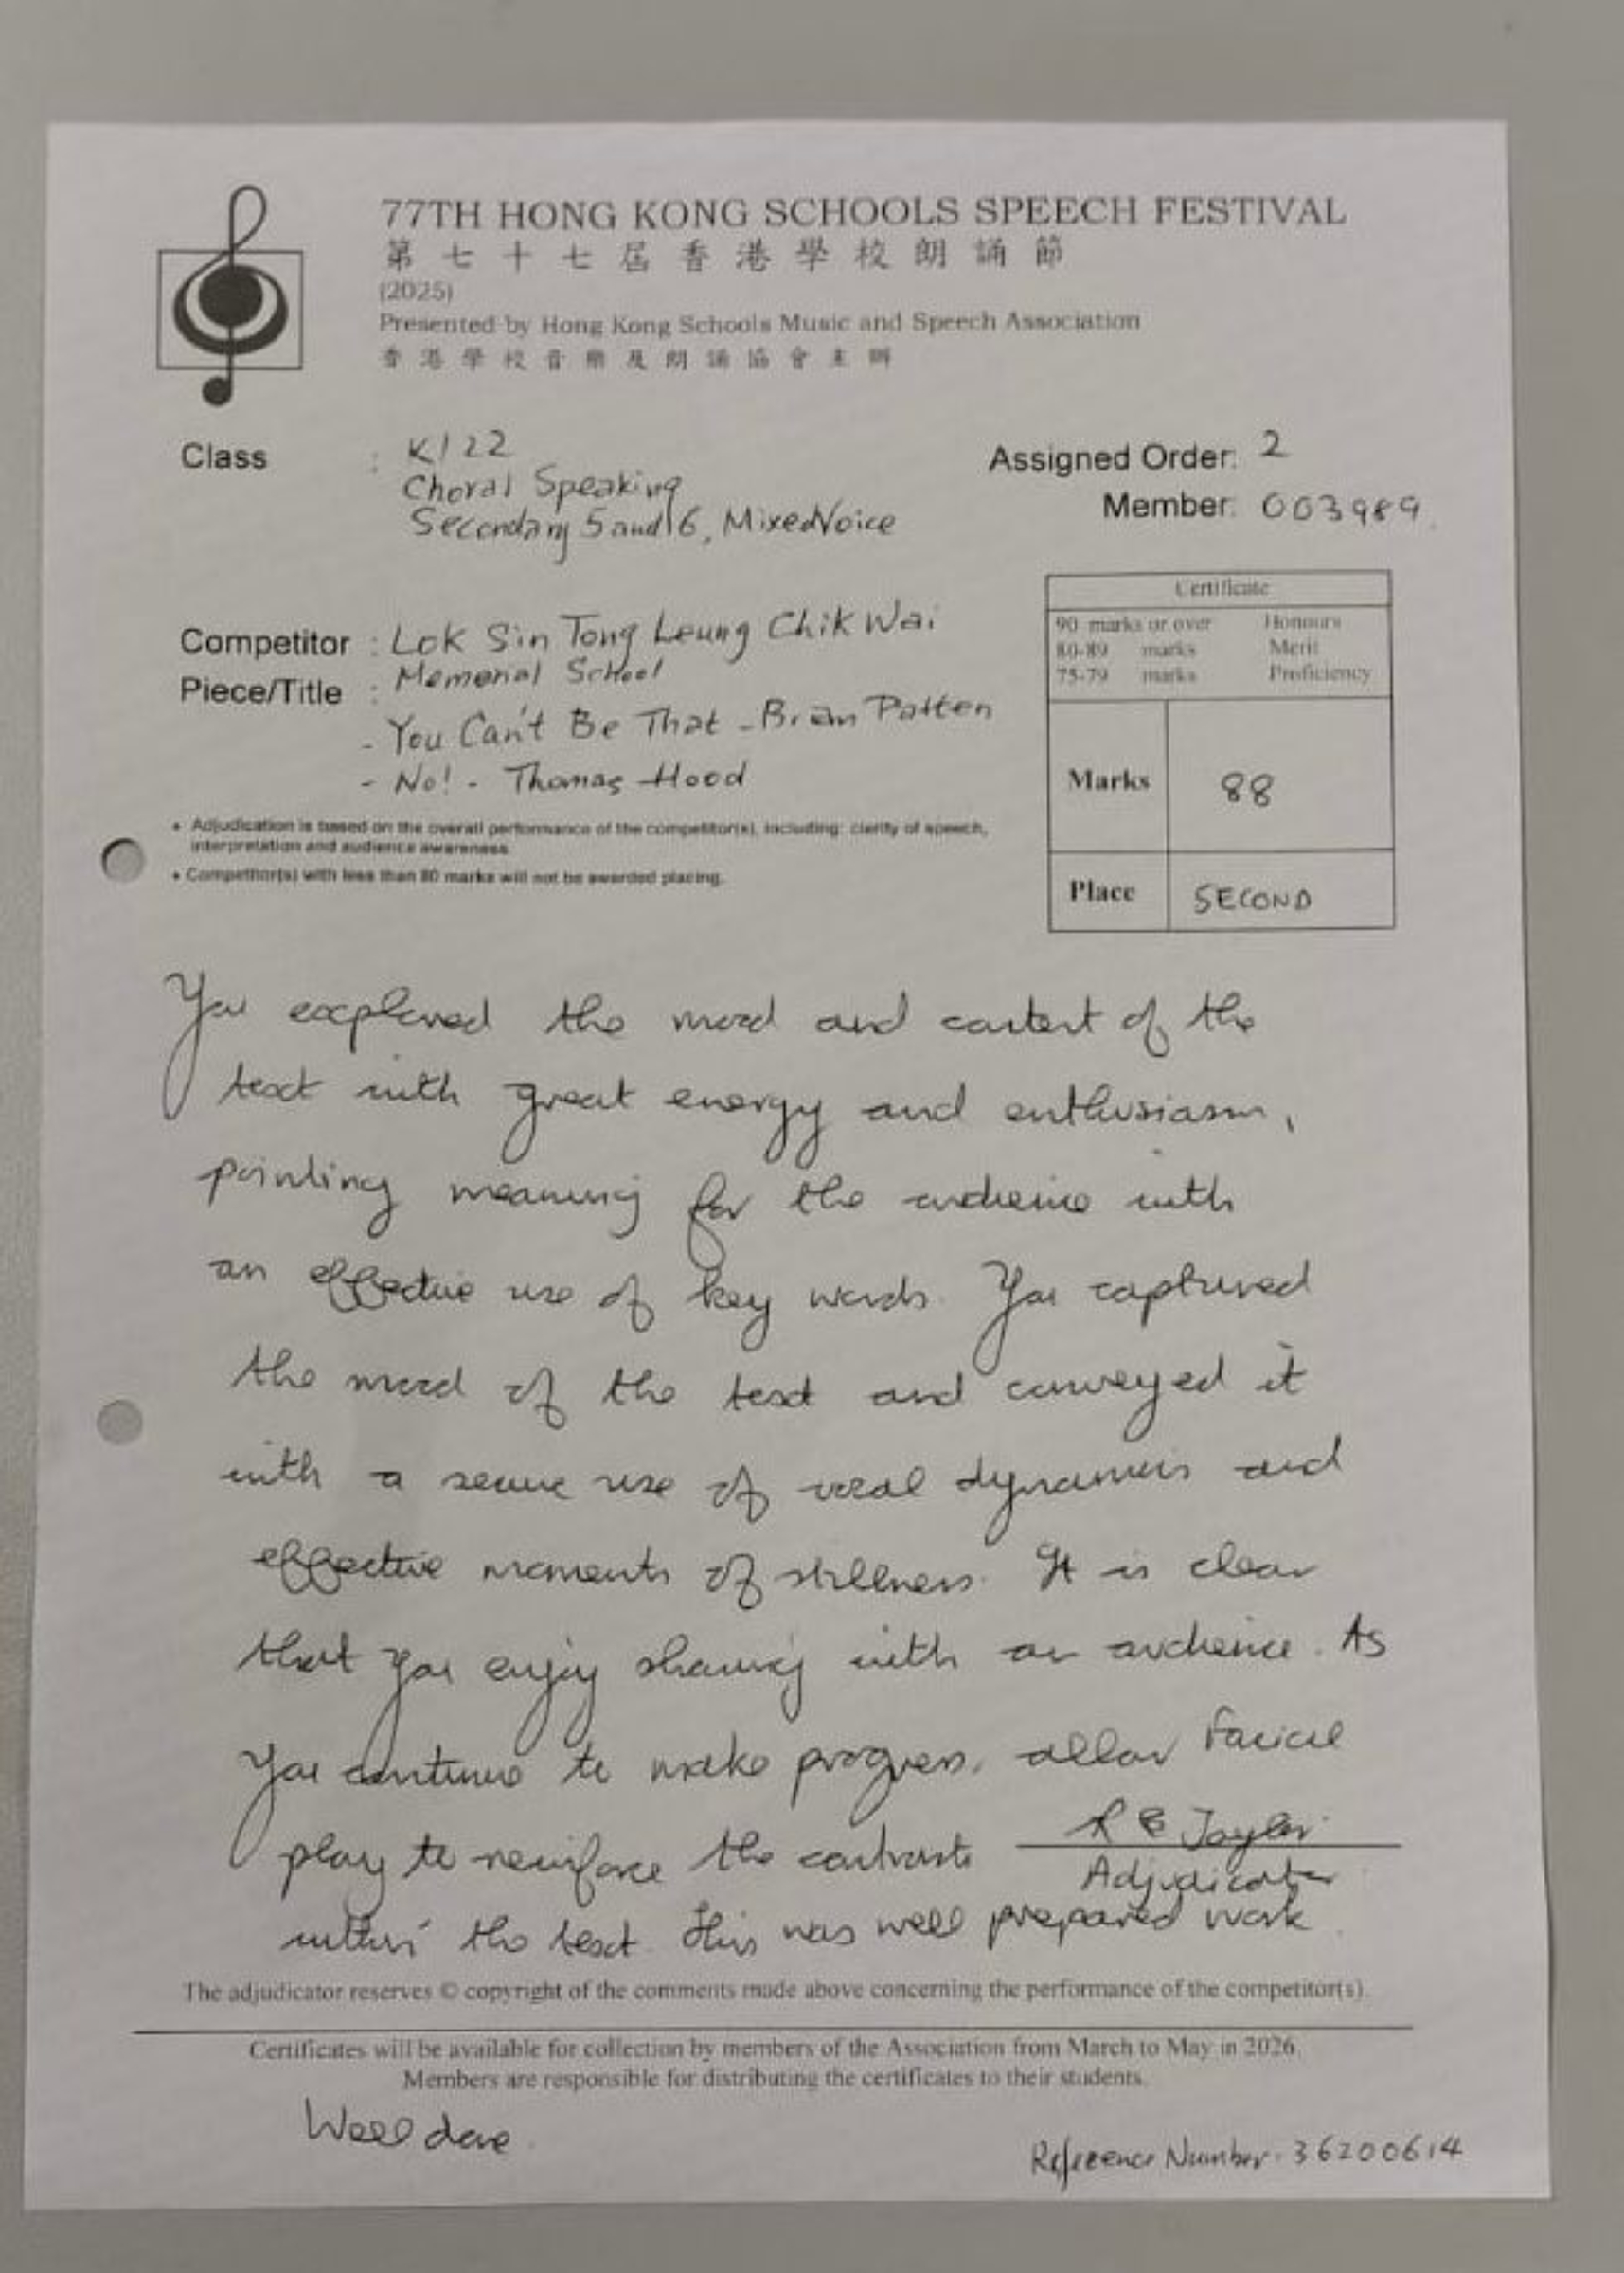 77TH HONG KONG SCHOOLS SPEECH FESTIVAL
第七十七屆香港學校朗誦節
(2025)
Presented by Hong Kong Schools Music and Speech Association
香港學校音樂及朗誦協會主辦
Class : K122
Choral Speaking
Secondary 5 and 6, Mixed Voice
Assigned Order: 2
Member: 003989
Competitor : Lok Sin Tong Leung Chik Wai
Memorial School
Piece/Title :
- You Can't Be That - Brian Patten
- No! - Thomas Hood
Certificate
90 marks or over Honours
80-89 marks Merit
75-79 marks Proficiency
Marks 88
Place SECOND
• Adjudication is based on the overall performance of the competitor(s), including: clarity of speech,
interpretation and audience awareness.
• Competitor(s) with less than 80 marks will not be awarded placing.
You explored the mood and content of the
text with great energy and enthusiasm,
pointing meaning for the audience with
an effective use of key words. You captured
the mood of the text and conveyed it
with a secure use of vocal dynamics and
effective moments of stillness. It is clear
that you enjoy sharing with an audience. As
you continue to make progress, allow facial
play to reinforce the contrasts
within the text. This was well prepared work.
R E Taylor
Adjudicator
The adjudicator reserves © copyright of the comments made above concerning the performance of the competitor(s).
Certificates will be available for collection by members of the Association from March to May in 2026.
Members are responsible for distributing the certificates to their students.
Well done.
Reference Number: 36200614